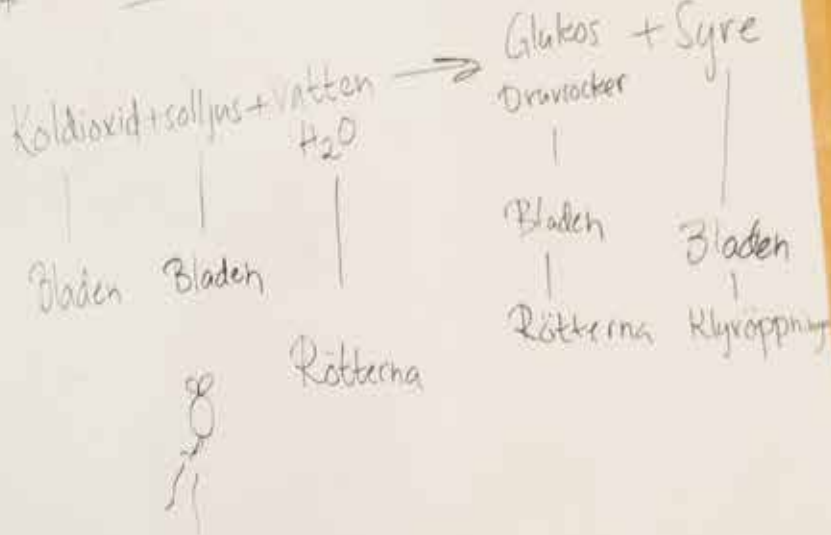 Koldioxid + solljus + Vatten → Glukos + Syre
H₂O Druvsocker
Bladen Bladen Bladen Bladen
Rötterna Rötterna Klyvöppningar